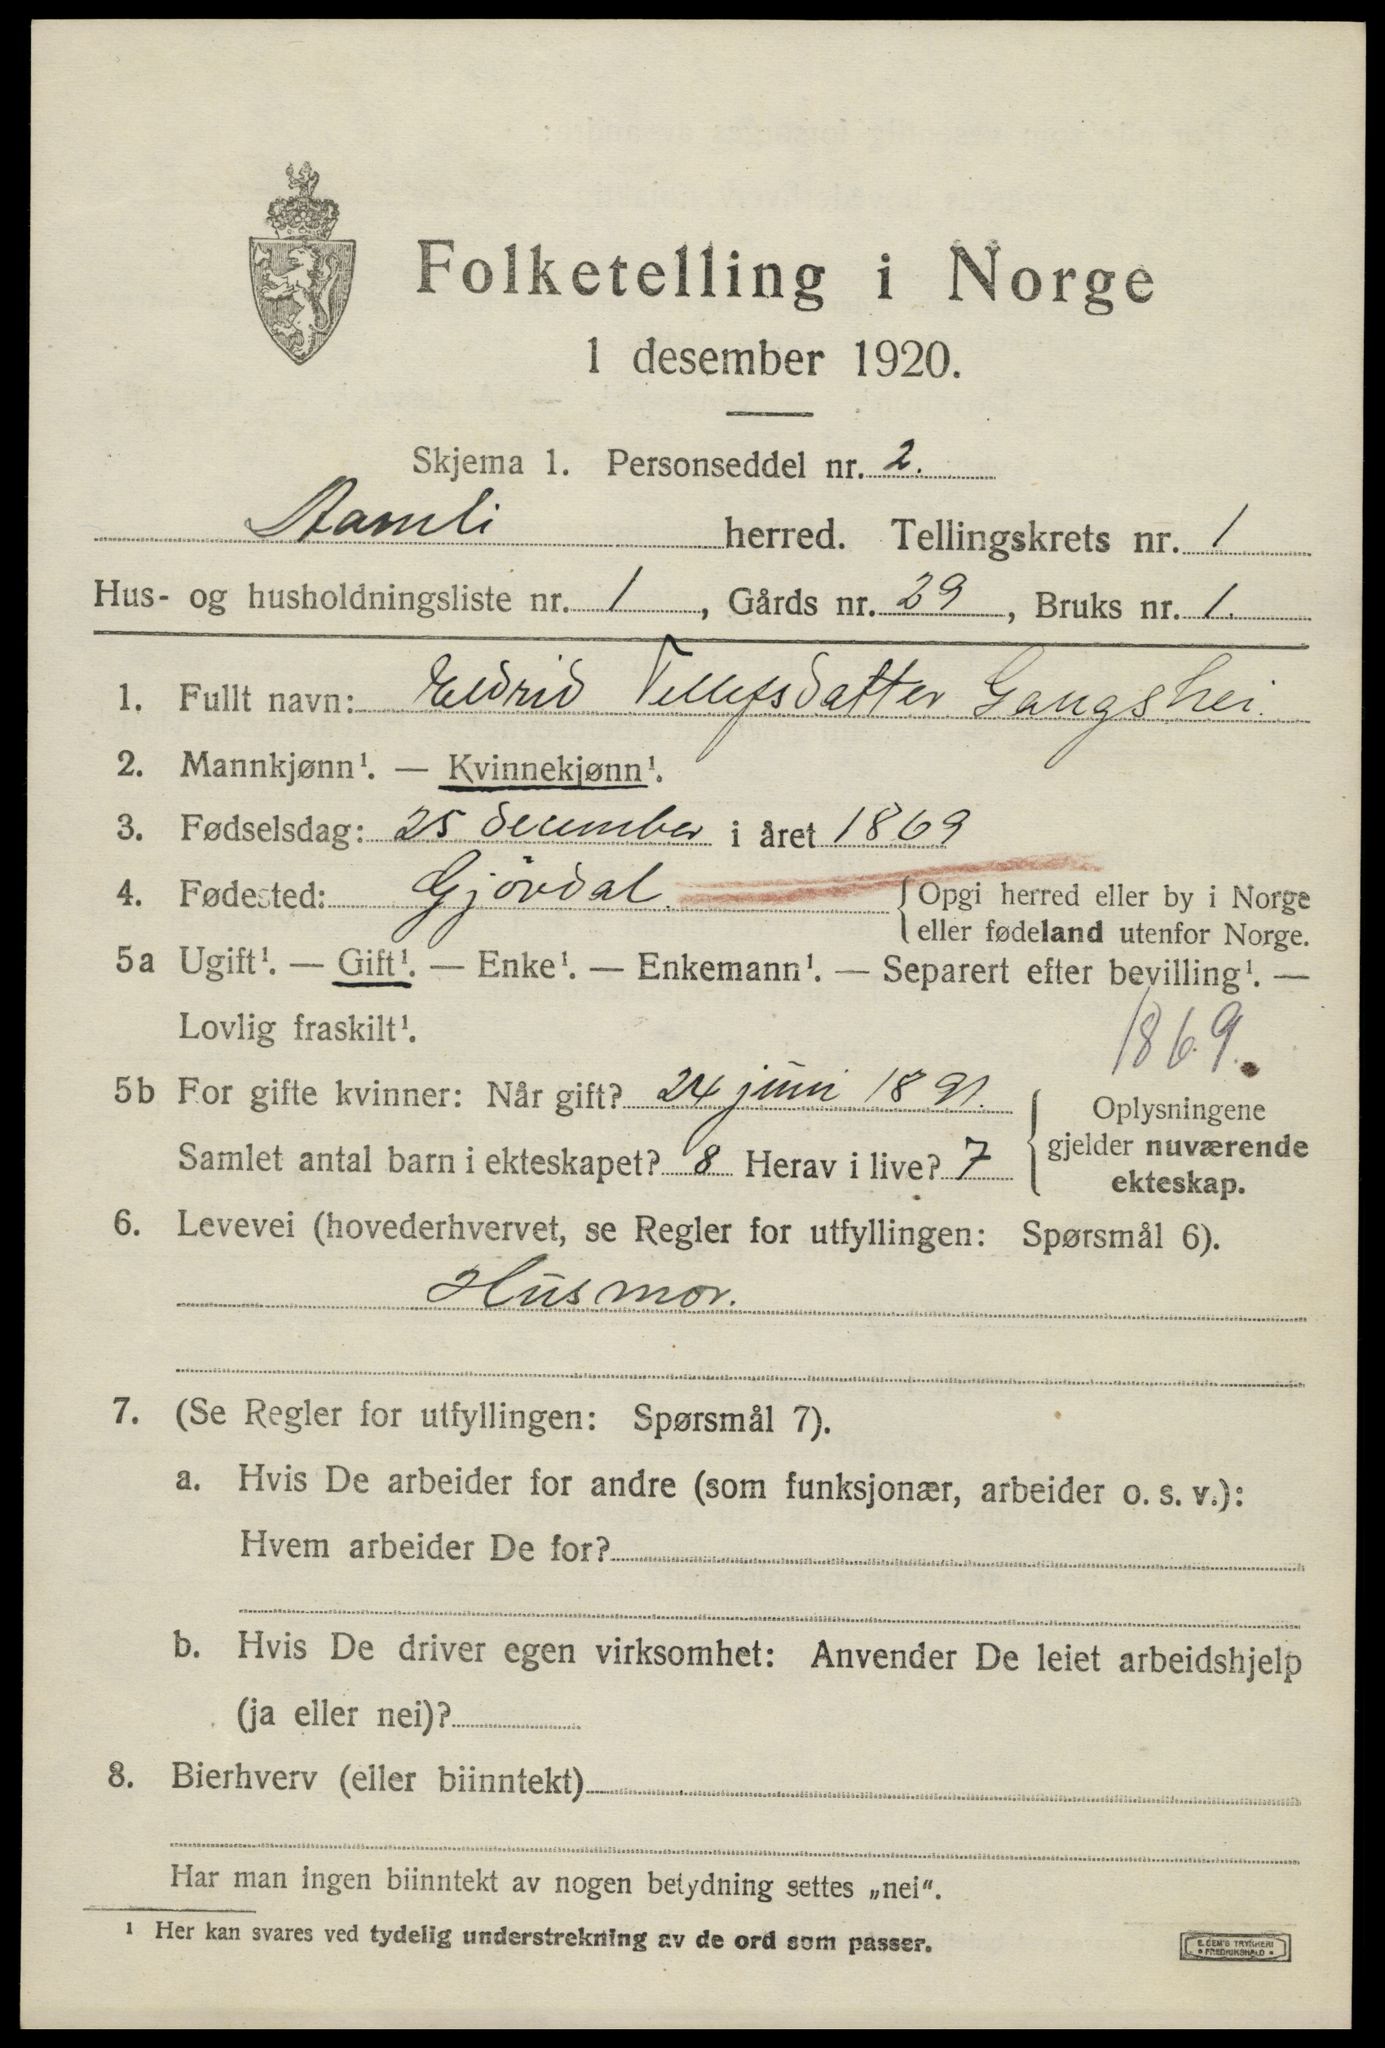 Folketelling i Norge
1 desember 1920.
Skjema 1. Personseddel nr. 2.
Aamli herred. Tellingskrets nr. 1
Hus- og husholdningsliste nr. 1, Gårds nr. 29, Bruks nr. 1.
1. Fullt navn: Eldrid Tellefsdatter Gangshei.
2. Mannkjønn¹. — Kvinnekjønn¹.
3. Fødselsdag: 25 december i året 1869
4. Fødested: Gjövdal. { Opgi herred eller by i Norge
eller fødeland utenfor Norge.
5a Ugift¹. — Gift¹. — Enke¹. — Enkemann¹. — Separert efter bevilling¹. —
Lovlig fraskilt¹.
1869.
5b For gifte kvinner: Når gift? 24 juni 1891.
Samlet antal barn i ekteskapet? 8 Herav i live? 7
{ Oplysningene
gjelder nuværende
ekteskap.
6. Levevei (hovederhvervet, se Regler for utfyllingen: Spørsmål 6).
Husmor.
7. (Se Regler for utfyllingen: Spørsmål 7).
a. Hvis De arbeider for andre (som funksjonær, arbeider o. s. v.):
Hvem arbeider De for?
b. Hvis De driver egen virksomhet: Anvender De leiet arbeidshjelp
(ja eller nei)?
8. Bierhverv (eller biinntekt)
Har man ingen biinntekt av nogen betydning settes „nei“.
¹ Her kan svares ved tydelig understrekning av de ord som passer.
E. SEM'S TRYKKERI
• FREDRIKSHALD •